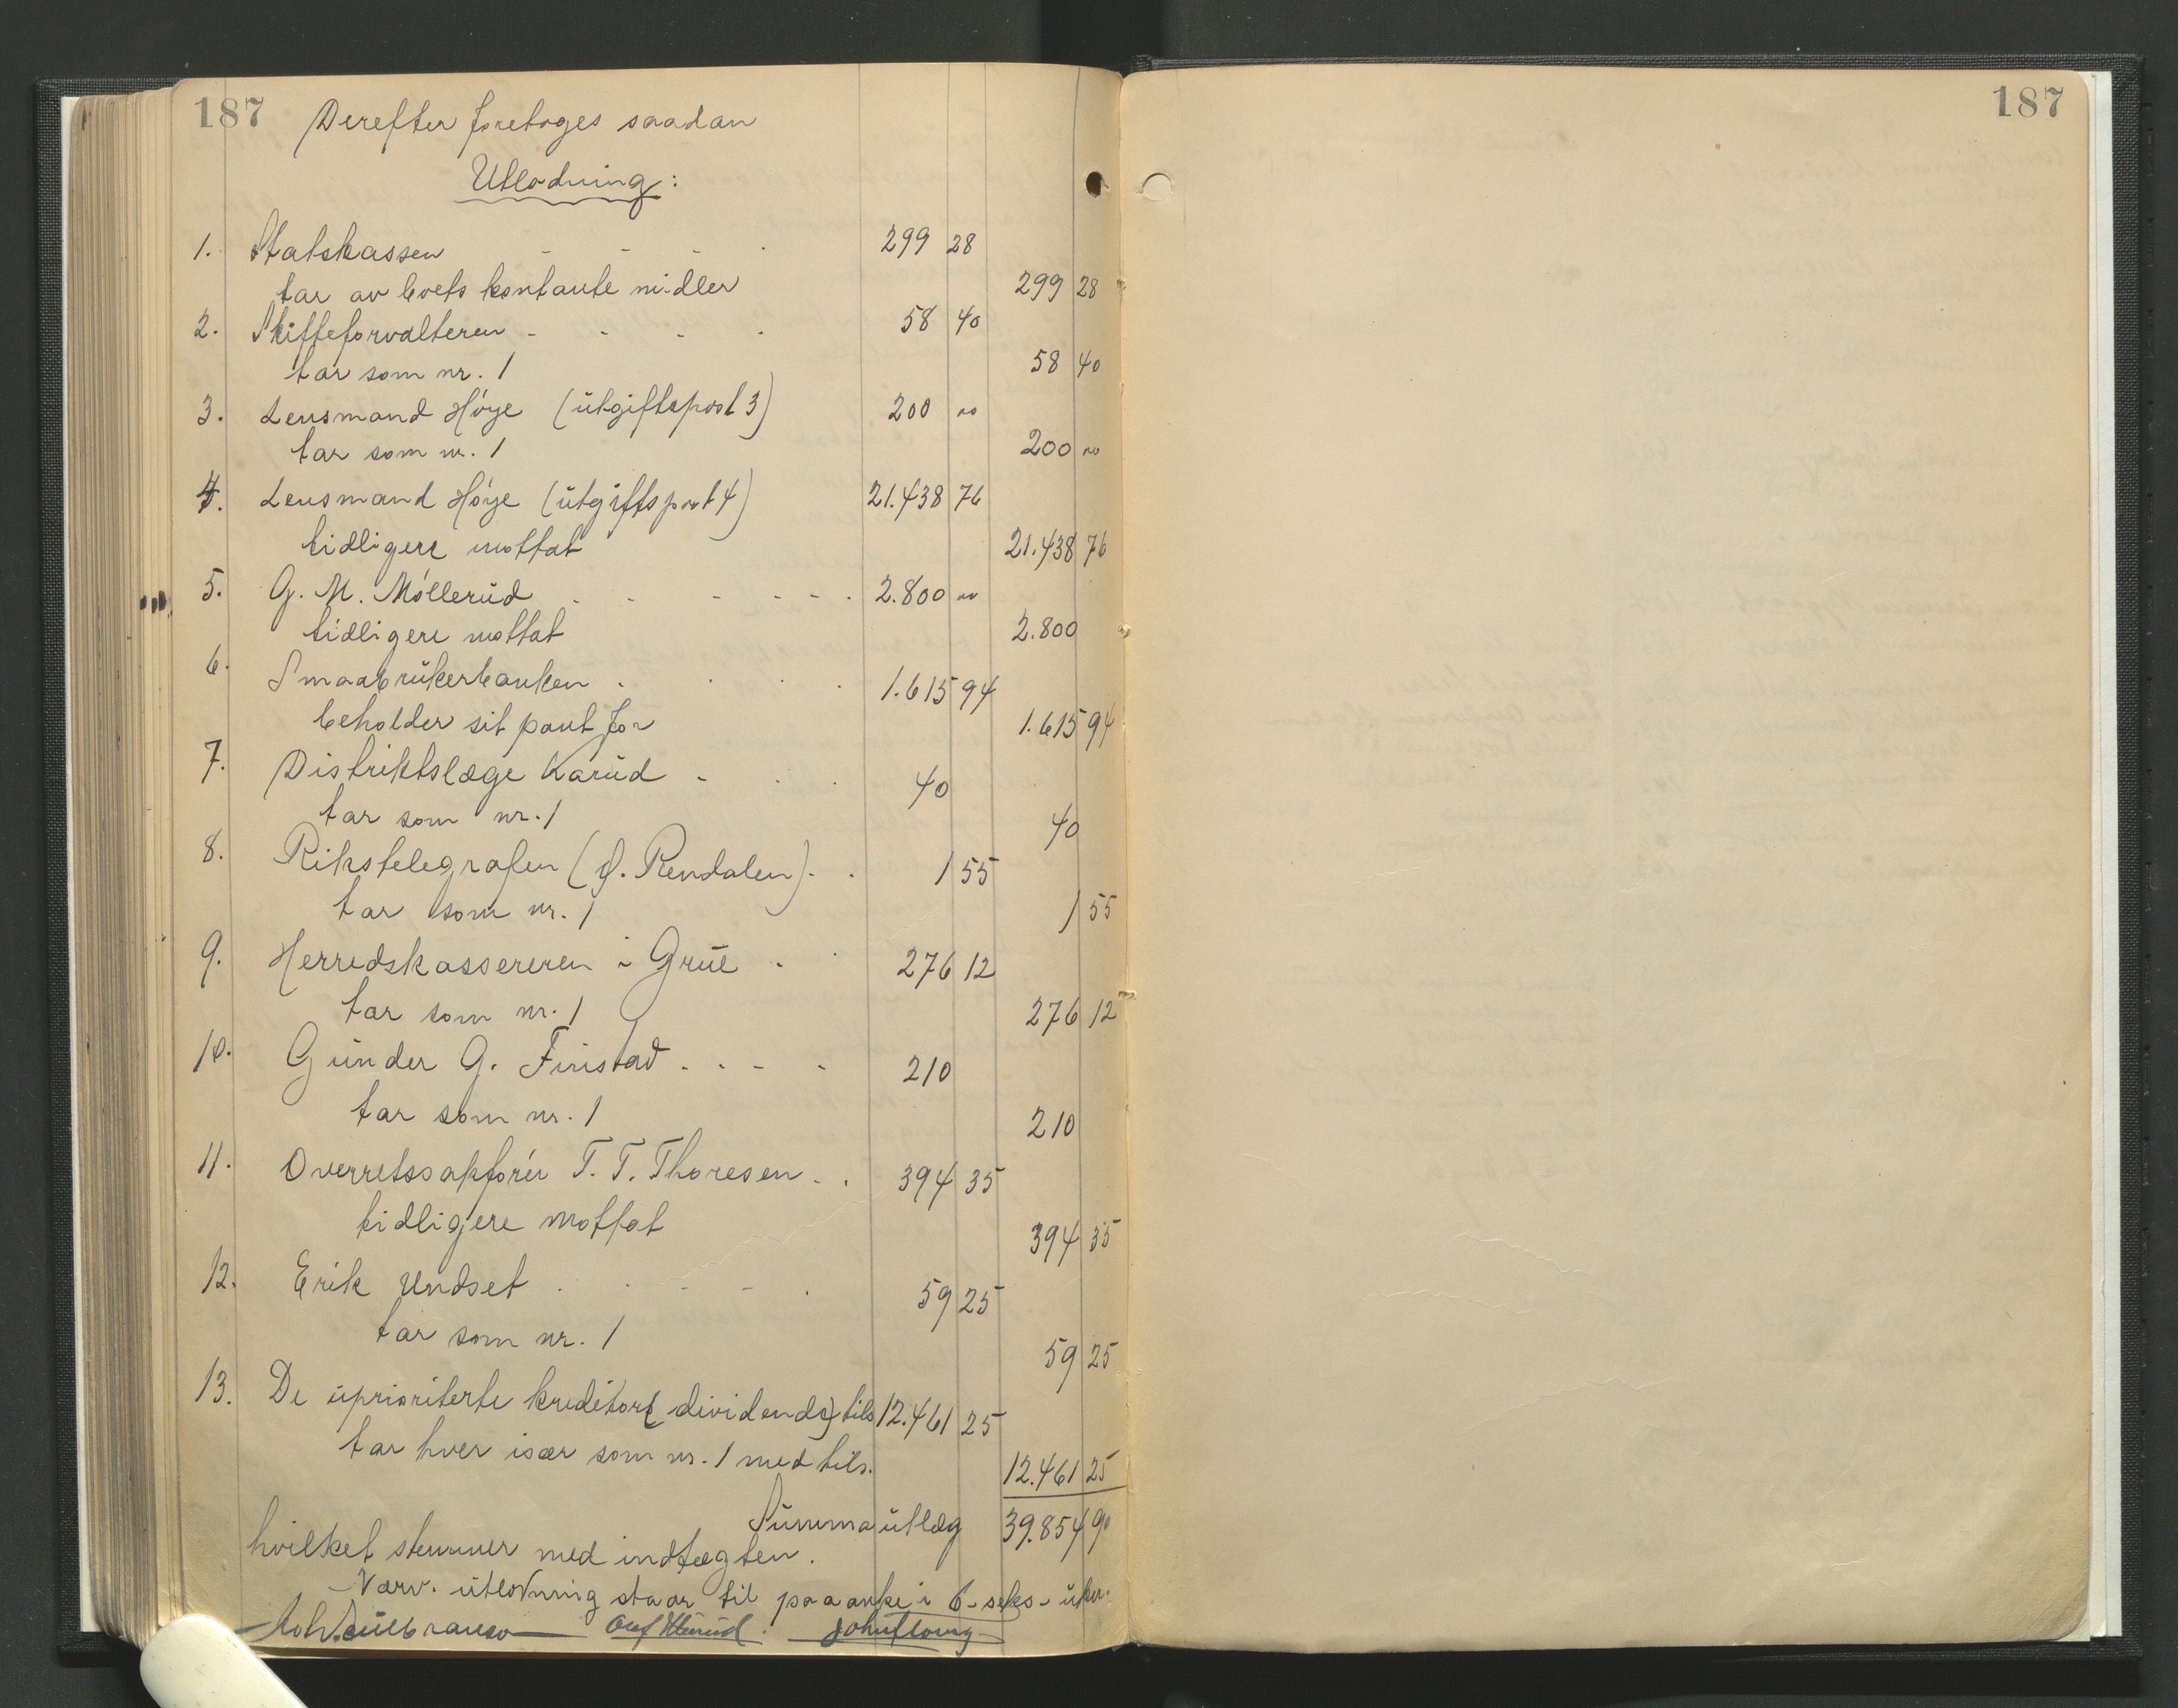 187 Derefter foretoges saadan
Utlodning:
1. Statskassen - - - . 299 28
tar av boets kontante midler 299 28
2. Skifteforvalteren - - - . 58 40
tar som nr. 1 58 40
3. Lensmand Høye (utgiftspost 3) 200 "
tar som nr. 1 200 "
4. Lensmand Høye (utgiftspost 4) 21.438 76
tidligere mottat 21.438 76
5. G. M. Møllerud . - - - - - . 2.800 "
tidligere mottat 2.800
6. Smaabrukerbanken . . . . 1.615 94
beholder sit pant for 1.615 94
7. Distriktslæge Karud - . . 40
tar som nr. 1 40
8. Rikstelegrafen (Ø. Rendalen) . . 1 55
tar som nr. 1 1 55
9. Herredskassereren i Grue . . 276 12
tar som nr. 1 276 12
10. Gunder G. Finstad . . - . 210
tar som nr. 1 210
11. Overretssakfører T. T. Thoresen . . 394 35
tidligere mottat 394 35
12. Erik Undset . . - - . 59 25
tar som nr. 1 59 25
13. De uprioriterte kreditore (dividende) tils 12.461 25
tar hver især som nr. 1 med tils. 12.461 25
Summa utlæg 39.854 90
hvilket stemmer med indtægten.
Nærv. utlodning staar til paaanke i 6 - seks - uker.
187